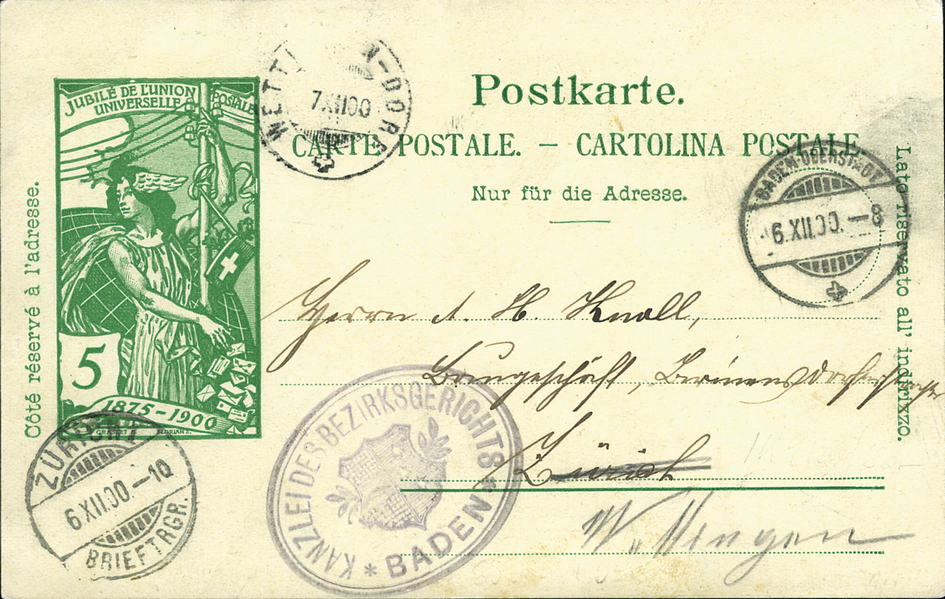 JUBILÉ DE L'UNION
UNIVERSELLE POSTALE
5
1875-1900
Côté réservé à l'adresse.
7 XII 00
Postkarte.
CARTE POSTALE. — CARTOLINA POSTALE
Nur für die Adresse.
Lato riservato all' indirizzo.
BADEN-OBERSTADT
6.XII.00.—8
Herrn A. H. Knoll,
Baugeschäft,
Zürich
Wettingen
KANZLEI DES BEZIRKSGERICHTS
* BADEN *
ZÜRICH
6 XII.00.—10
BRIEFTRGR.